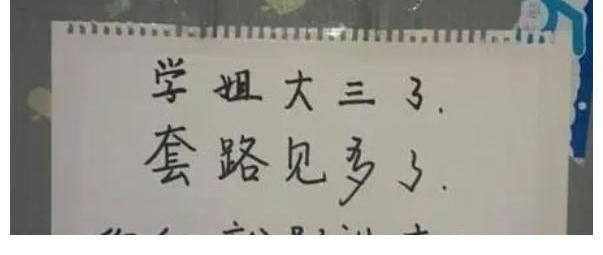 学姐大三了.
套路见多了.